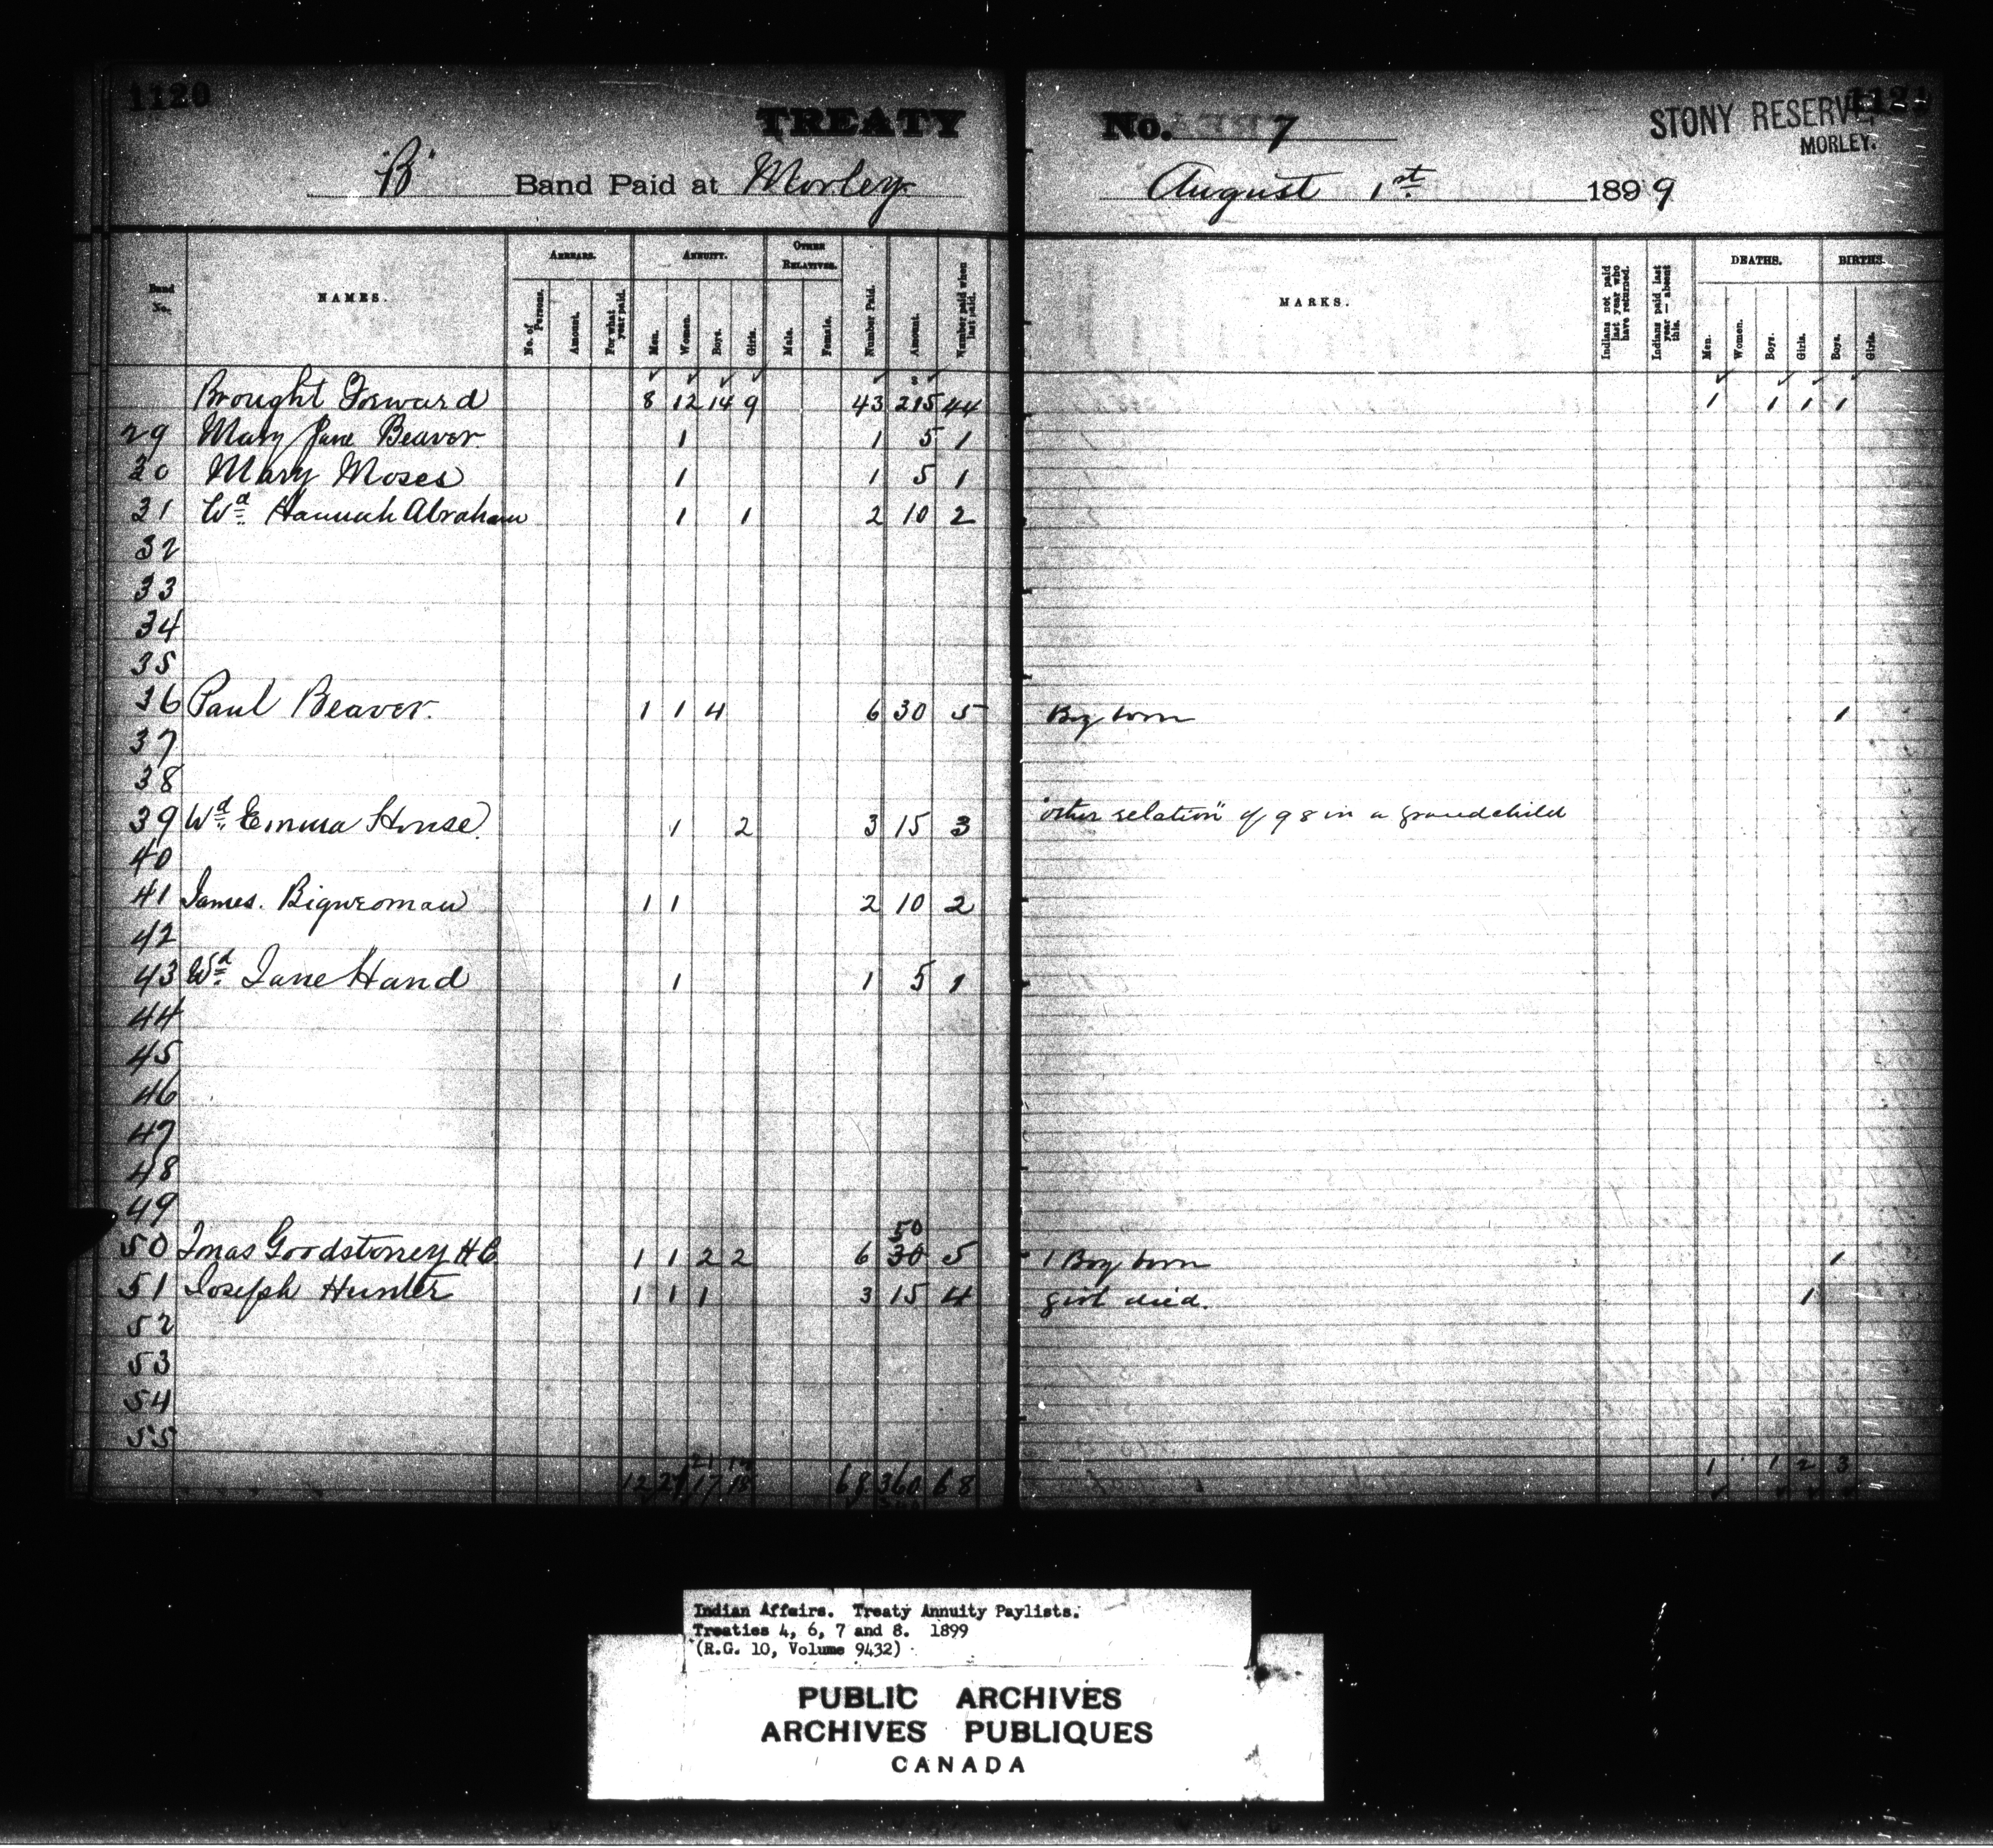 1120
TREATY No. 7
STONY RESERVE,
MORLEY.
"B" Band Paid at Morley August 1st 1899
Band No. NAMES. ARREARS. ANNUITY. OTHER RELATIVES. Number Paid. Amount. Number paid when last paid. MARKS. Indians not paid last year who have returned. Indians paid last year — absent this. DEATHS. BIRTHS.
No. of Persons. Amount. For what year paid. Men. Women. Boys. Girls. Male. Female. Men. Women. Boys. Girls. Boys. Girls.
Brought Forward 8 12 14 9 43 215 44 1 1 1 1
29 Mary Jane Beaver 1 1 5 1
30 Mary Moses 1 1 5 1
31 Wd. Hannah Abraham 1 1 2 10 2
32
33
34
35
36 Paul Beaver. 1 1 4 6 30 5 Boy born 1
37
38
39 Wd. Emma House. 1 2 3 15 3 "other relation" of 98 in a grandchild
40
41 James. Bigwoman 1 1 2 10 2
42
43 Wd. Jane Hand 1 1 5 1
44
45
46
47
48
49
50
50 Jonas Goodstoney HC 1 1 2 2 6 30 5 1 Boy born 1
51 Joseph Hunter 1 1 1 3 15 4 girl died. 1
52
53
54
55
21
12 21 17 18 68 360 68 1 1 2 3
Indian Affairs. Treaty Annuity Paylists.
Treaties 4, 6, 7 and 8. 1899
(R.G. 10, Volume 9432)
PUBLIC ARCHIVES
ARCHIVES PUBLIQUES
CANADA